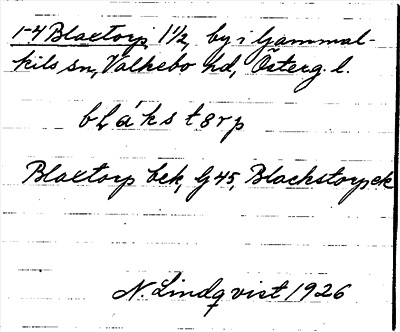 1-4 Blaxtorp, 1 1/2, by i Gammal-
kils sn, Valkebo hd, Österg. l.
blákstørp
Blaxtorp bek, G 45, Blackstorp ek
N. Lindqvist 1926